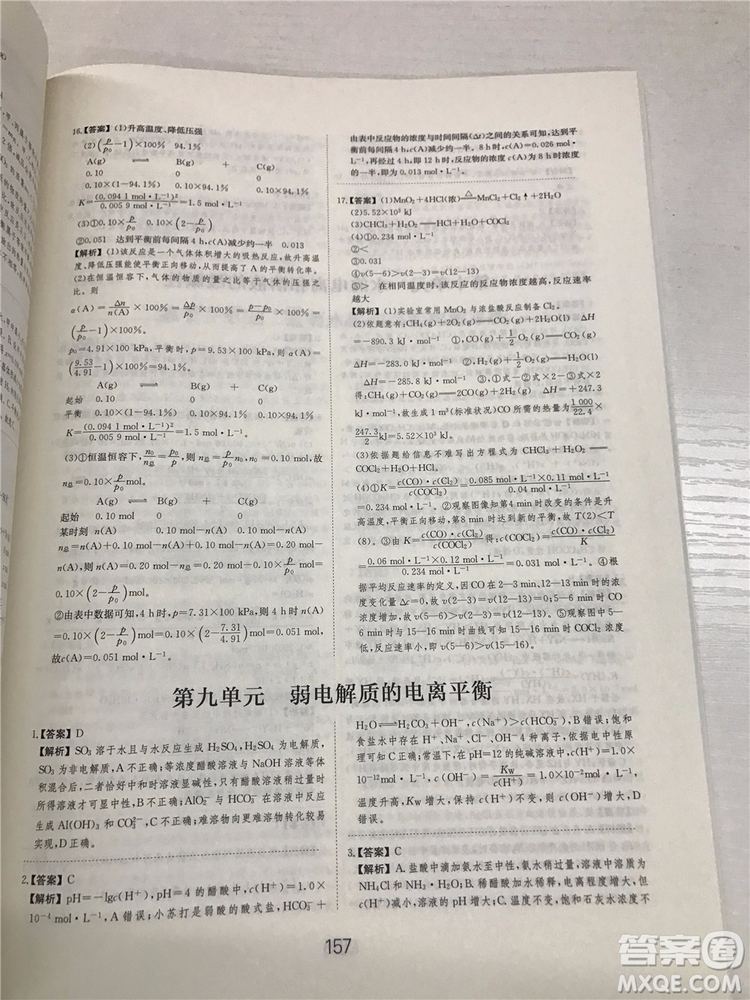 16.【答案】(1)升高温度、降低压强
(2)(p/p₀−1)×100% 94.1%
A(g) ⇌ B(g) + C(g)
0.10 0 0
0.10×(1−94.1%) 0.10×94.1% 0.10×94.1%
K=(0.094 1 mol·L⁻¹)²/0.005 9 mol·L⁻¹=1.5 mol·L⁻¹
(3)①0.10×p/p₀ 0.10×(2−p/p₀)
②0.051 达到平衡前每间隔 4 h,c(A)减少约一半 0.013
【解析】(1)该反应是一个气体体积增大的吸热反应，故升高温
度、降低压强能使平衡正向移动，从而增大了 A 的平衡转化率。
(2)在恒温恒容下，气体的物质的量之比等于气体的压强之
比。则
α(A)=Δn/n(A)×100%=Δp/p₀×100%=(p−p₀)/p₀×100%
=(p/p₀−1)×100%
p₀=4.91×100 kPa,平衡时,p=9.53×100 kPa,则 α(A)=
(9.53/4.91−1)×100%=94.1%。
A(g) ⇌ B(g) + C(g)
起始 0.10 0 0
平衡 0.10×(1−94.1%) 0.10×94.1% 0.10×94.1%
K=(0.094 1 mol·L⁻¹)²/0.005 9 mol·L⁻¹=1.5 mol·L⁻¹
(3)①恒温恒容下,n₀/n总=p₀/p,则 n总=n₀·p/p₀,n总=0.10 mol,故
n总=0.10×p/p₀ mol。
A(g) ⇌ B(g) + C(g)
起始 0.10 mol 0 0
某时刻 n(A) 0.10 mol−n(A) 0.10 mol−n(A)
n总=n(A)+0.10 mol−n(A)+0.10 mol−n(A)=0.20 mol−
n(A),则 n(A)=0.20 mol−n总=0.20 mol−0.10×p/p₀ mol=
0.10×(2−p/p₀)mol。
②由表中数据可知,4 h 时,p=7.31×100 kPa,则 4 h 时 n(A)
=0.10×(2−p/p₀)mol=0.10×(2−7.31/4.91)mol=0.051
mol,故c(A)=0.051 mol·L⁻¹。
由表中反应物的浓度与时间间隔(Δt)的关系可知，达到平
衡前每间隔 4 h,c(A)减少约一半。8 h时,c(A)=0.026 mol·
L⁻¹,再经过 4 h,即 12 h时,反应物的浓度c(A)为 8 h时浓度
的一半,即为 0.013 mol·L⁻¹。
17.【答案】(1)MnO₂+4HCl(浓)=△=MnCl₂+Cl₂↑+2H₂O
(2)5.52×10³ kJ
(3)CHCl₃+H₂O₂══HCl+H₂O+COCl₂
(4)①0.234 mol·L⁻¹
②<
③0.031
④υ(5—6)>υ(2—3)=υ(12—13)
⑤> 在相同温度时，该反应的反应物浓度越高，反应速率
越大
【解析】(1)实验室常用 MnO₂ 与浓盐酸反应制备 Cl₂。
(2)依题意有:①CH₄(g)+2O₂(g)══CO₂(g)+2H₂O(l) ΔH
=−890.3 kJ·mol⁻¹ ②CO(g)+½O₂(g)══CO₂(g)
ΔH=−283.0 kJ·mol⁻¹ ③H₂(g)+½O₂(g)══H₂O(l)
ΔH=−285.8 kJ·mol⁻¹;由①式−②式×2−③式×2
得:CH₄(g)+CO₂(g)══2CO(g)+2H₂(g) ΔH=+247.3
kJ·mol⁻¹,故生成 1 m³(标准状况)CO 所需的热量为1 000/22.4×
247.3/2 kJ=5.52×10³ kJ。
(3)依据题给信息不难写出方程式为 CHCl₃+H₂O₂══
COCl₂+HCl+H₂O。
(4)①K=c(CO)·c(Cl₂)/c(COCl₂)=0.085 mol·L⁻¹×0.11 mol·L⁻¹/0.04 mol·L⁻¹
=0.234 mol·L⁻¹。②观察图像知第4 min时改变的条件是升
高温度,平衡正向移动,第8 min时达到新的平衡,故T(2)<T
(8)。③由温度一定,K不变知,c(COCl₂)=c(CO)·c(Cl₂)/K=
0.06 mol·L⁻¹×0.12 mol·L⁻¹/0.234 mol·L⁻¹=0.031 mol·L⁻¹。④依
据平均反应速率的定义，因 CO 在 2—3 min、12—13 min 时的浓
度变化量 Δc=0,故υ(2—3)=υ(12—13)=0。⑤观察图像中
5—6 min 时与 15—16 min 时曲线可知 15—16 min 时
COCl₂ 的浓度变化比5—6 min 时小,即υ(5—6)>υ(15—16)。
第九单元 弱电解质的电离平衡
1.【答案】D
【解析】SO₃ 溶于水且与水反应生成 H₂SO₄,H₂SO₄导电,
SO₃为非电解质,A 不正确;等浓度醋酸与 NaOH 溶液等体
积混合后,二者恰好中和时溶液显碱性，只有醋酸溶液过量时
所得溶液才可显中性,B 不正确;AlO₂⁻ 与 HCO₃⁻在溶液中反应
生成 Al(OH)₃ 和 CO₃²⁻,C 不正确;难溶物向更难溶物转化较易
实现,D正确。
2.【答案】C
【解析】pH=−lgc(H⁺),pH=4 的醋酸中,c(H⁺)=1.0×
10⁻⁴ mol·L⁻¹,A错误;小苏打是弱酸的酸式盐,HCO₃⁻+
H₂O⇌H₂CO₃+OH⁻,c(Na⁺)>c(HCO₃⁻),B 错误;饱和
食盐水中的 c(Na⁺)+c(H⁺)=c(Cl⁻)+c(OH⁻),依据电中性原
则,C正确;常温下,在 pH=12 的纯碱溶液中,c(H⁺)=1.0×
10⁻¹² mol·L⁻¹,c(OH⁻)=Kw/c(H⁺)=1.0×10⁻² mol·L⁻¹,
温度升高,Kw增大,保持 c(H⁺)不变,则c(OH⁻)增大,D错误。
3.【答案】C
【解析】A.盐酸中滴加氨水至中性,氨水稍过量,溶液中溶质为
NH₄Cl 和NH₃·H₂O,A错误;B.稀醋酸加水稀释,电离程度增大,
但 c(H⁺)减小,溶液的pH 增大,B错误;C.温度不变,饱和石灰水浓度不
157
答案圈
MXQE.COM